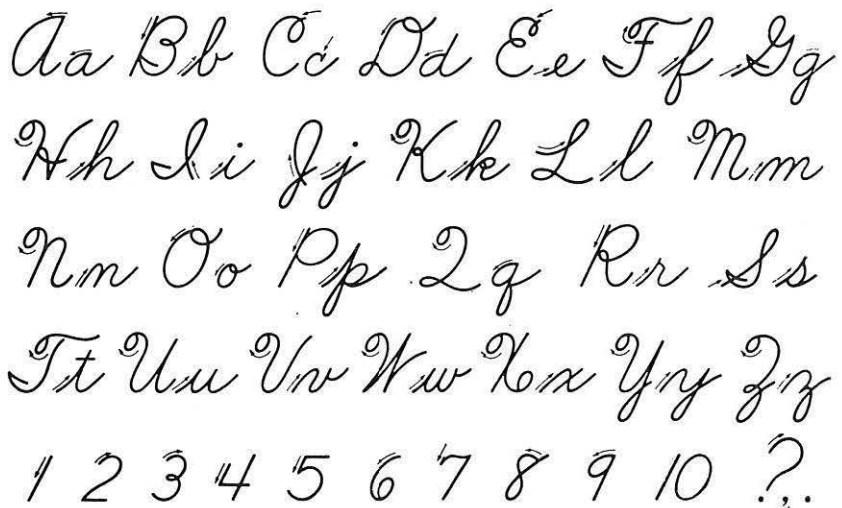 Aa Bb Cc Dd Ee Ff Gg
Hh Ii Jj Kk Ll Mm
Nn Oo Pp Qq Rr Ss
Tt Uu Vv Ww Xx Yy Zz
1 2 3 4 5 6 7 8 9 10 ? , .